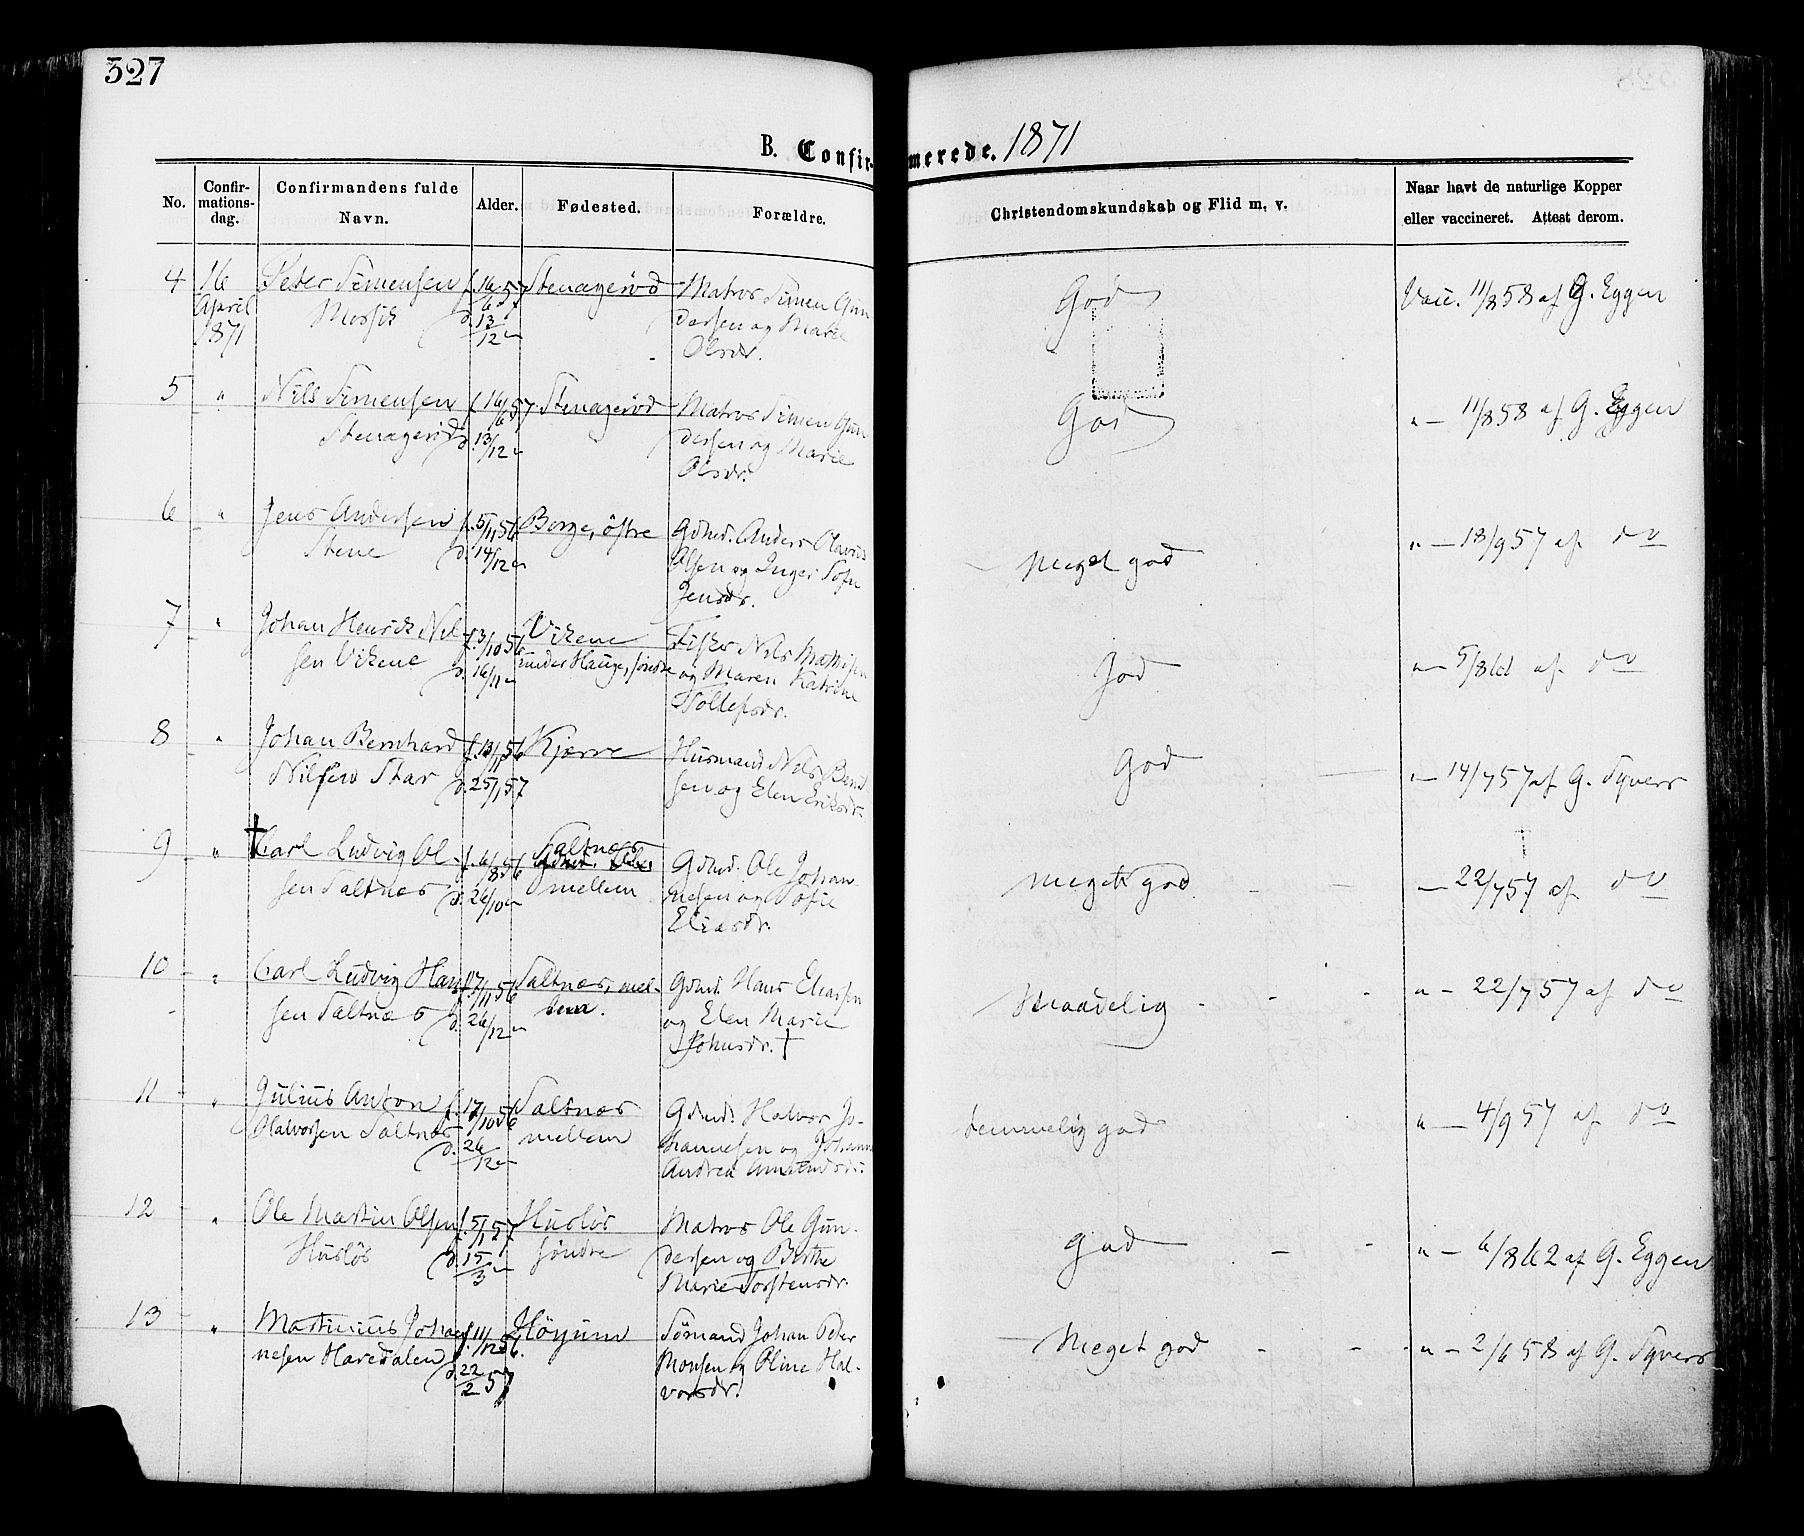 327
B. Confir-
merede. 1871
No.
Confir-
mations-
dag.
Confirmandens fulde
Navn.
Alder.
Fødested.
Forældre.
Christendomskundskab og Flid m. v.
Naar havt de naturlige Kopper
eller vaccineret. Attest derom.
4 16 Peter Simensen f. 16/6 57 Stenagerød Matros Simen Gun
April d. 13/12 " dersen og Marie
1871 Olsdr.
God
Vacc. 11/8 58 af G. Eggen
5 " Nils Simensen f. 16/6 57 Stenagerød Matros Simen Gun
Stenagerød d. 13/12 " dersen og Marie
Olsdr.
God
" — 11/8 58 af G. Eggen
6 " Jens Andersen f. 5/11 56 Borge, östre Gdmd. Anders
Stene d. 14/12 " Olsen og Inger Sofie
Jensdr.
Meget god
" — 18/9 57 af do
7 " Johan Henrik Nil f. 3/10 56 Vikene Fisker Nils
sen Vikene d. 16/11 " under Hauge, søndre og Maren Katrine
Tollefsdr.
God
" — 5/8 61 af do
8 " Johan Bernhard f. 13/11 56 Kjærre Husmand Nils Bent
Nilsen d. 25/1 57 sen og Elen Eriksdr.
God
" — 14/7 57 af G. Syvers
9 " † Carl Ludvig Ol f. 6/8 56 Saltnæs Gdmd. Ole Johan
sen Saltnæs d. 26/10 " mellem nesen og Sofie
Eliasdr.
Meget god
— 22/7 57 af do
10 " Carl Ludvig Han f. 17/11 56 Saltnæs, mel- Gdmd. Hans Eliassen
sen Saltnæs d. 26/12 " lem. og Elen Marie
Johnsdr. †
Maadelig
" — 22/7 57 af do
11 " Julius Anton f. 17/10 56 Saltnæs Gdmd. Halvor Jo-
Halvorsen Saltnæs d. 26/12 " mellem hannesen og Johanne
Andrea Amundsdr.
temmelig god
" — 4/9 57 af do
12 " Ole Martin Olsen f. 5/1 57 Husløs Matros Ole Gun-
Husløs d. 15/3 " søndre dersen og Birthe
Marie Torstensdr.
God
" — 6/8 62 af G. Eggen
13 " Martinius Johan f. 11/12 56. Höyum Sømand Johan Peter
nesen Haredalen d. 22/2 57 Monsen og Oline Hal-
vorsdr.
Meget god
" — 2/6 58 af G. Syvers